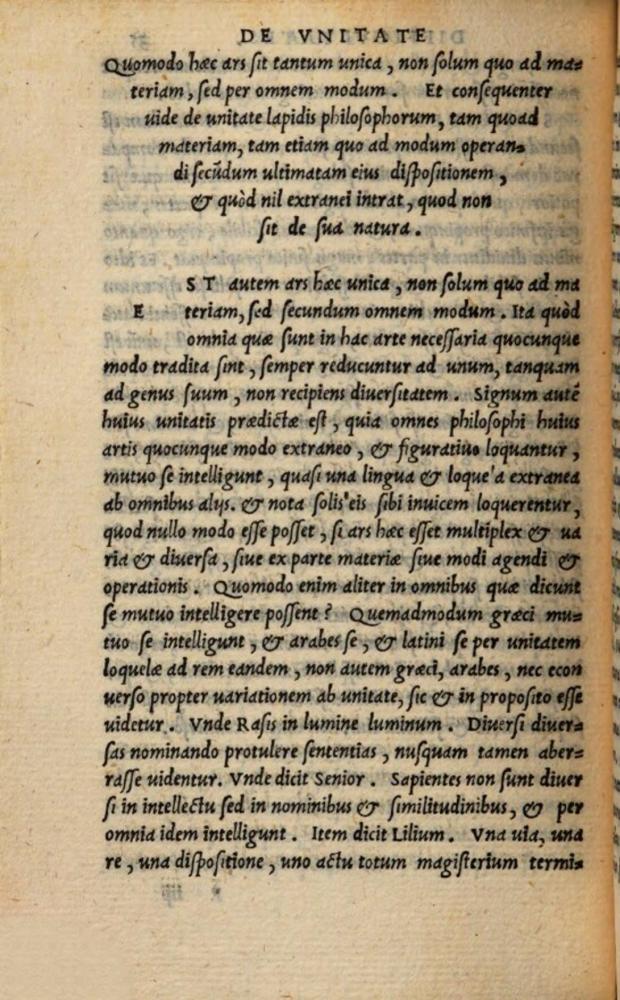 DE VNITATE
Quomodo hæc ars ſit tantum unica, non ſolum quo ad ma=
teriam, ſed per omnem modum. Et conſequenter
uide de unitate lapidis philoſophorum, tam quoad
materiam, tam etiam quo ad modum operan=
di ſecũdum ultimatam eius diſpoſitionem,
& quòd nil extranei intrat, quod non
ſit de ſua natura.
S T autem ars hæc unica, non ſolum quo ad ma
E teriam, ſed ſecundum omnem modum. Ita quòd
omnia quæ ſunt in hac arte neceſſaria quocunque
modo tradita ſint, ſemper reducuntur ad unum, tanquam
ad genus ſuum, non recipiens diuerſitatem. Signum autẽ
huius unitatis prædictæ eſt, quia omnes philoſophi huius
artis quocunque modo extraneo, & figuratiuo loquantur,
mutuo ſe intelligunt, quaſi una lingua & loque'a extranea
ab omnibus alijs. & nota ſolis'eis ſibi inuicem loquerentur,
quod nullo modo eſſe poſſet, ſi ars hæc eſſet multiplex & ua
ria & diuerſa, ſiue ex parte materiæ ſiue modi agendi &
operationis. Quomodo enim aliter in omnibus quæ dicunt
ſe mutuo intelligere poſſent? Quemadmodum græci mu=
tuo ſe intelligunt, & arabes ſe, & latini ſe per unitatem
loquelæ ad rem eandem, non autem græci, arabes, nec econ
uerſo propter uariationem ab unitate, ſic & in propoſito eſſe
uidetur. Vnde Raſis in lumine luminum. Diuerſi diuer=
ſas nominando protulere ſententias, nuſquam tamen aber=
raſſe uidentur. Vnde dicit Senior. Sapientes non ſunt diuer
ſi in intellectu ſed in nominibus & ſimilitudinibus, & per
omnia idem intelligunt. Item dicit Lilium. Vna uia, una
re, una diſpoſitione, uno actu totum magiſterium termi=